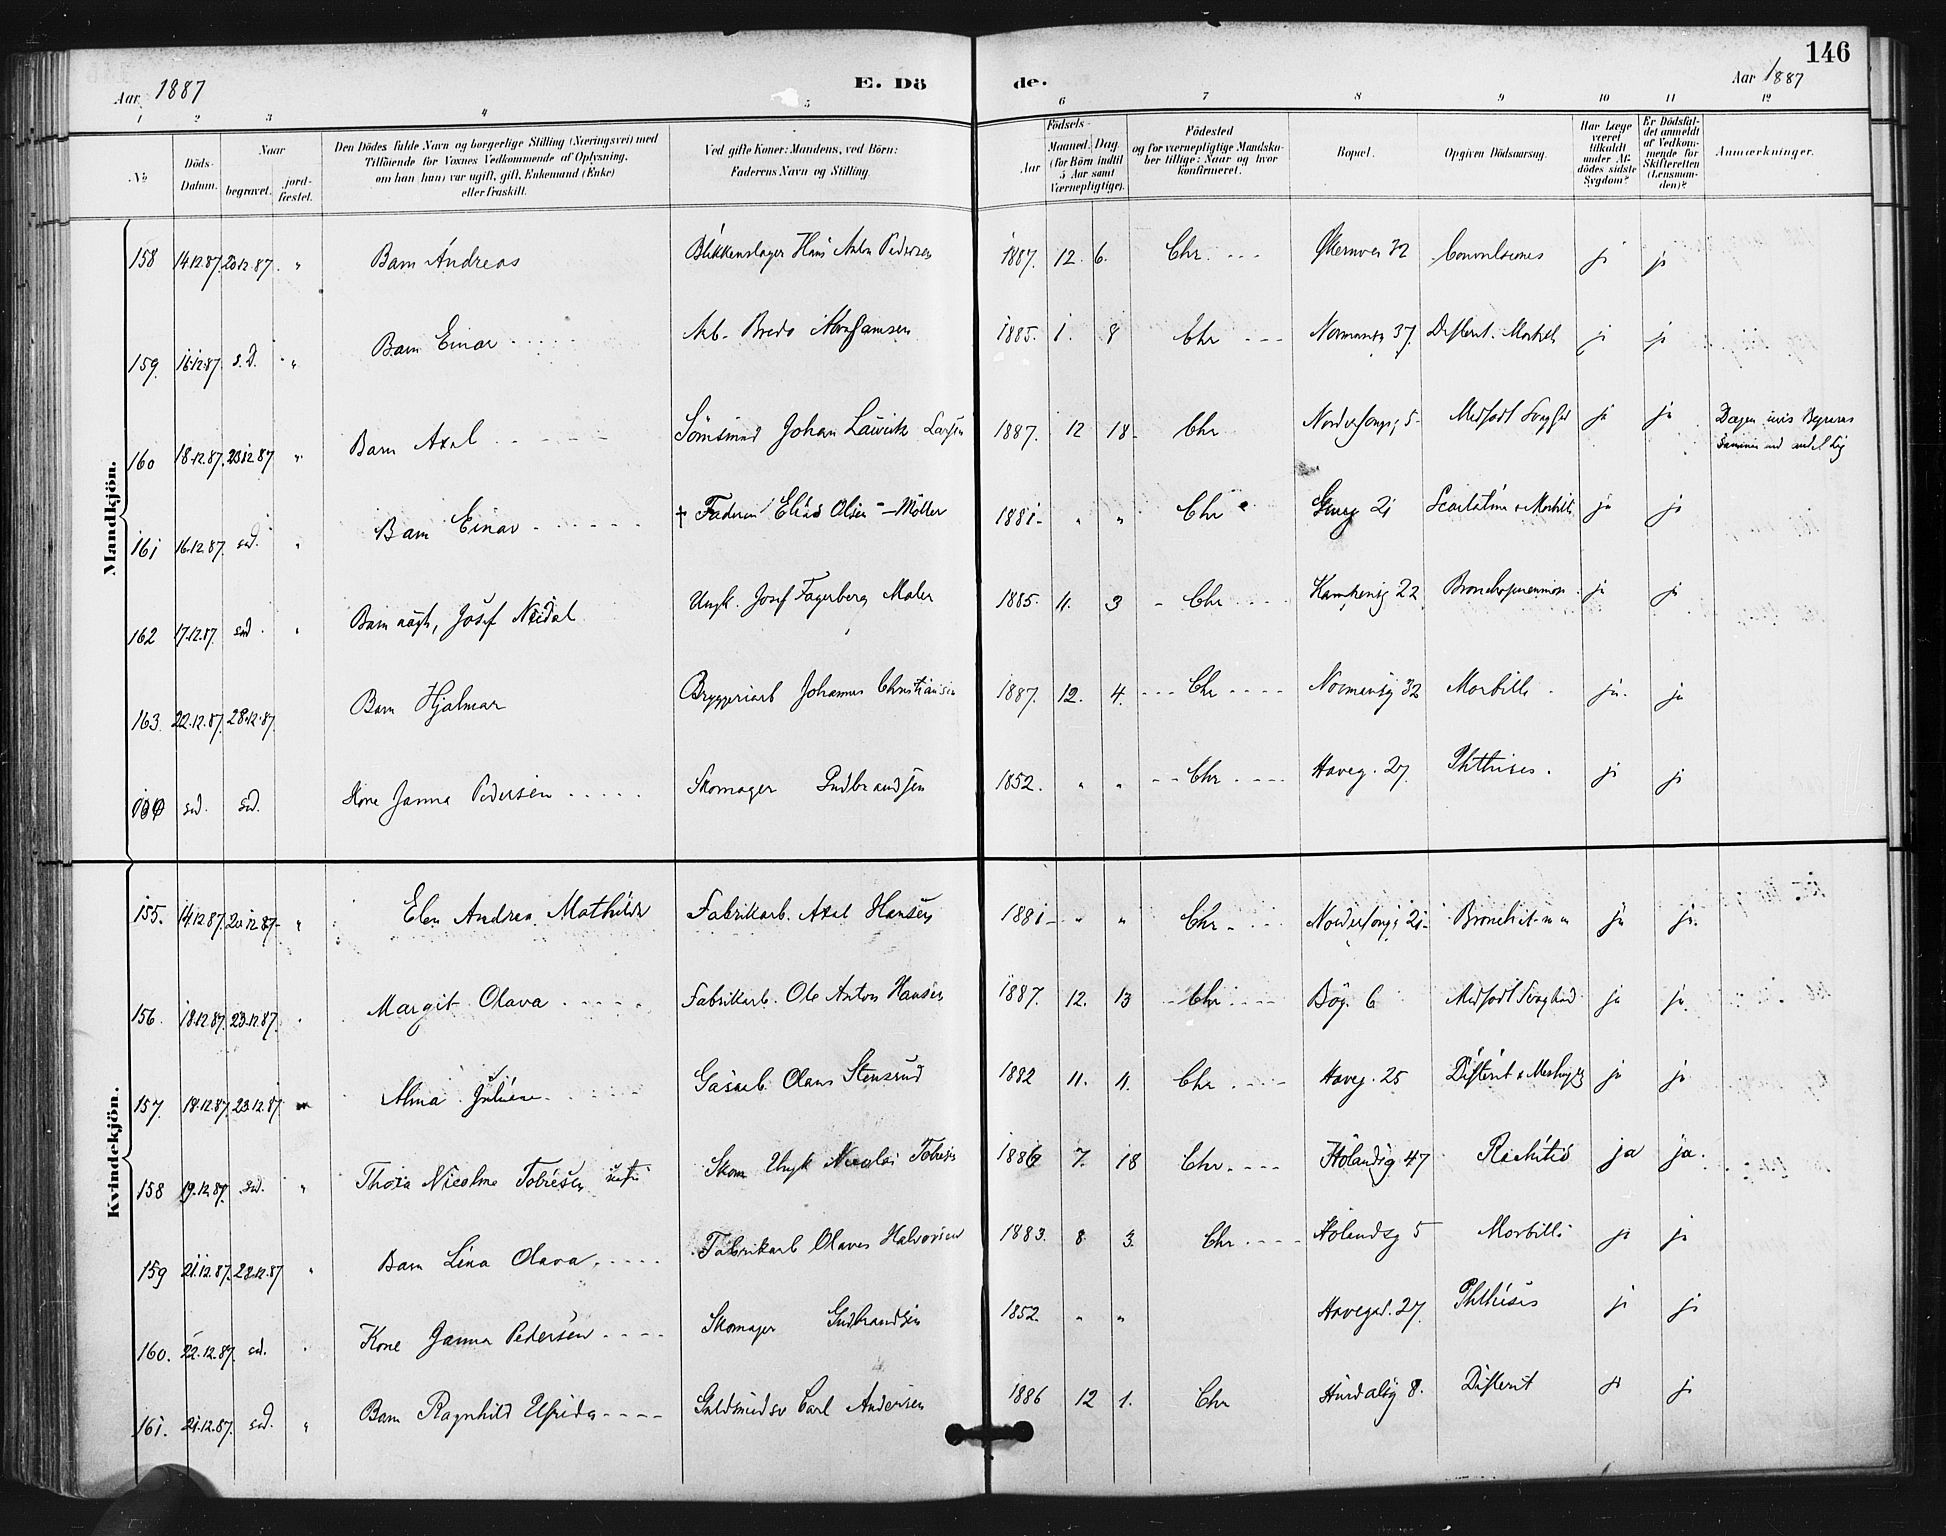 146
Aar 1887
E. Dö
de.
Aar 1887
1 2 3 4 5 6 7 8 9 10 11 12
No
Döds-Datum.
Naar
begravet.
jord-fæstet.
Den Dödes fulde Navn og borgerlige Stilling (Næringsvei) med
Tilföiende for Voxnes Vedkommende af Oplysning,
om han (hun) var ugift, gift, Enkemand (Enke)
eller fraskilt.
Ved gifte Koner: Mandens, ved Börn:
Faderens Navn og Stilling.
Födsels-
Aar
Maaned. Dag
(for Börn indtil
5 Aar samt
Værnepligtige).
Födested
og for værnepligtige Mandska-
ber tillige: Naar og hvor
konfirmeret.
Bopæl.
Opgiven Dödsaarsag.
Har Læge
været
tilkaldt
under Af-
dödes sidste
Sygdom?
Er Dödsfal-
det anmeldt
af Vedkom-
mende for
Skifteretten
(Lensman-
den)?
Anmærkninger.
Mandkjön.
158 14.12.87. 20.12.87. " Barn Andreas Blikkenslager Hans Anton Pedersen 1887. 12. 6. Chr. Økernvei 32 Convulsiones ja ja
159. 16.12.87. s.d. " Barn Einar Arb. Bredo Abrahamsen 1885. 1. 8 Chr 37. Difterit. Morbilli ja ja
160 18.12.87. 23.12.87 " Barn Axel Johan Larsen 1887. 12 18 Chr 5 Medfødt Svaghed ja ja
161 16.12.87. sd. " Barn Einar † Faderen Elias Olsen - Möller 1881 " " Chr 21 Scarlatina & Morbilli ja ja
162 17.12.87. sd " Barn uægt, Josef Ungk. Josef Fagerberg Maler 1885. 11. 3 Chr 22 Bronchopneumoni ja ja
163. 22.12.87. 28.12.87. Barn Hjalmar Bryggeriarb Johannes Christiansen 1887. 12. 4. Chr Normansg 32 Morbilli ja. ja
sd. sd. Kone Janna Pedersen Skomager Gudbrandsen 1852. " " Chr Haveg. 27. Phthisis. ja ja
Kvindekjön.
155. 14.12.87. 20.12.87 " Elen Andrea Mathilde Fabrikarb. Axel Hansen 1881 " " Chr. 21 ja ja.
156. 18.12.87. 23.12.87. Margit Olava Fabrikarb. Ole Anton Hansen 1887. 12. 13 Chr. Bög. 6 Medfødt Svaghed ja ja.
157. 18.12.87. 23.12.87. Alma Juliane Gasarb. Olaus Stensrud 1882 11. 11. Chr. Haveg. 25 ja ja
158 19.12.87. sd. " Thora Nicoline Tobiesen Skom Ungk Nicolai Tobiesen 1886 7. 18 Chr. Hölandsg 47 Rachitis ja ja.
159 21.12.87. 28.12.87 " Barn Lina Olava Fabrikarb Olaves Halvorsen 1883. 8. 3. Chr. Hölandsg 5 Morbilli ja ja
160. 22.12.87. sd. Kone Janna Pedersen Skomager Gudbrandsen 1852. " " Havegad. 27. Phthisis ja ja
161. 21.12.87. sd. " Barn Ragnhild Elfrida Guldsmedsv Carl Andersen 1886 12 1. Chr Hurdalsg 8. Difterit ja ja